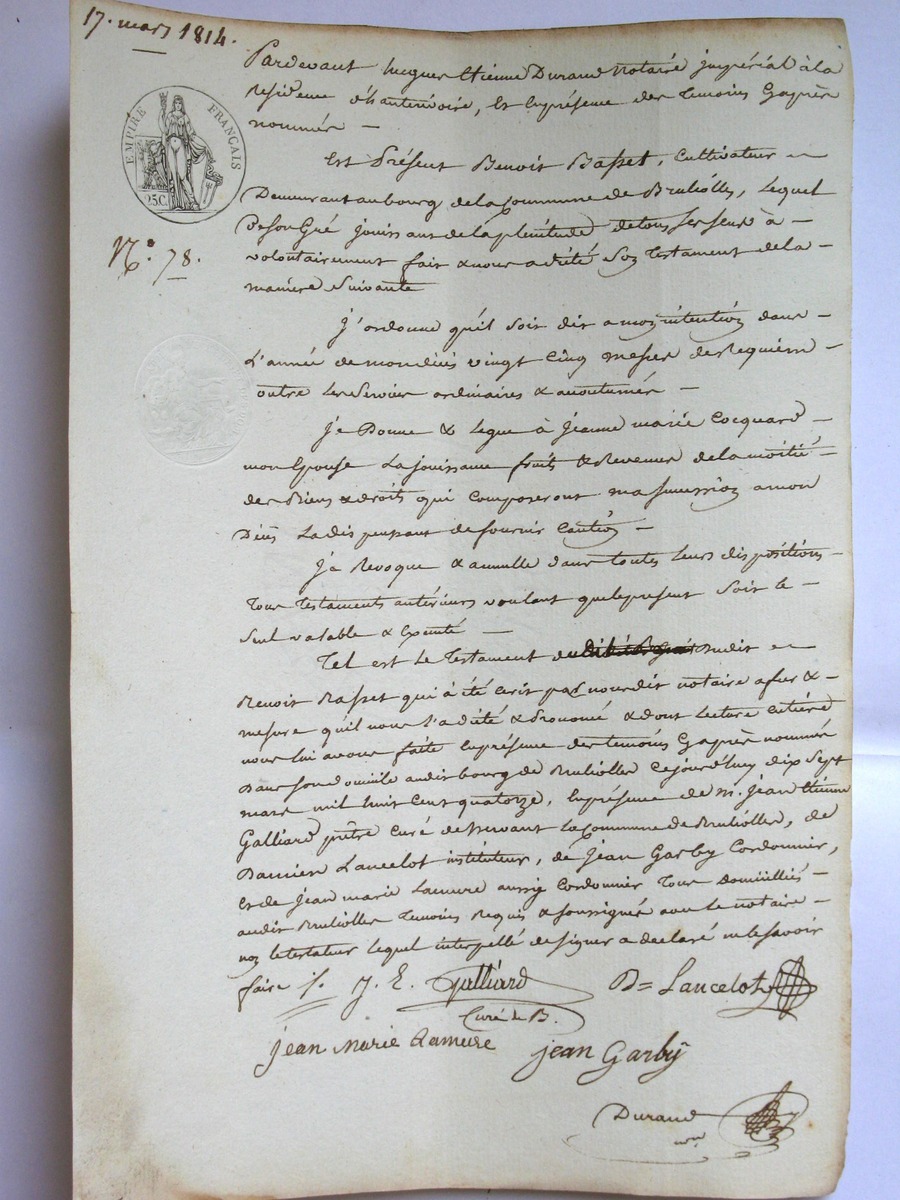 17. mars 1814.
EMPIRE FRANÇAIS
25 C.
N.° 78.
Pardevant Jacques Etienne Durand Notaire jmpérial à la
residence d'hauterivoire, et enprésence des temoins cyaprès
nommés —
Est Présent Benoit Basset, Cultivateur
Demeurant au bourg de la Commune de Brulliolles, lequel
De son Gré jouissant de la plénitude de tous ses sens à —
volontairement fait & nous a dicté son testament de la —
maniere suivante
J'ordonne qu'il soit dit a mon intention dans —
L'année de mon décès vingt cinq messes de Requiem —
outre les services ordinaires & acoutumés —
Je Donne & Legue à Jeanne marie Cocquard —
mon Epouse La jouissance fruits & Revenus de la moitié —
des Biens & droits qui composeront ma succession a mon
Décès La dispensant de fournir Caution —
Je Revoque & annulle dans toutes leurs dispositions —
tous testaments antérieurs voulant que le present soit le —
seul valable & exécuté —
Tel est le testament du dit
Benoit Basset qui à été écrit par nous dit notaire a fur & —
mesure qu'il nous l'a dicté & prononcé & dont lecture entière
nous lui avons faite enprésence des temoins cyaprès nommés
Dans son domicile audit bourg de Brulliolles cejourd'huy dix sept
mars mil huit cent quatorze, enprésence de m. Jean Etienne
Galliard prêtre curé desservant la Commune de Brulliolles, de
Damien Lancelot instituteur, de Jean Garby Cordonnier,
et de Jean marie Lamure aussy Cordonnier tous domiciliés —
audit Brulliolles temoins Requis & soussignés avec le notaire —
non le testateur lequel interpellé de signer a déclaré ne le savoir
faire /. J. E. Galliard D= Lancelot
Curé de B.
jean Marie Lamure jean Garby
Durand